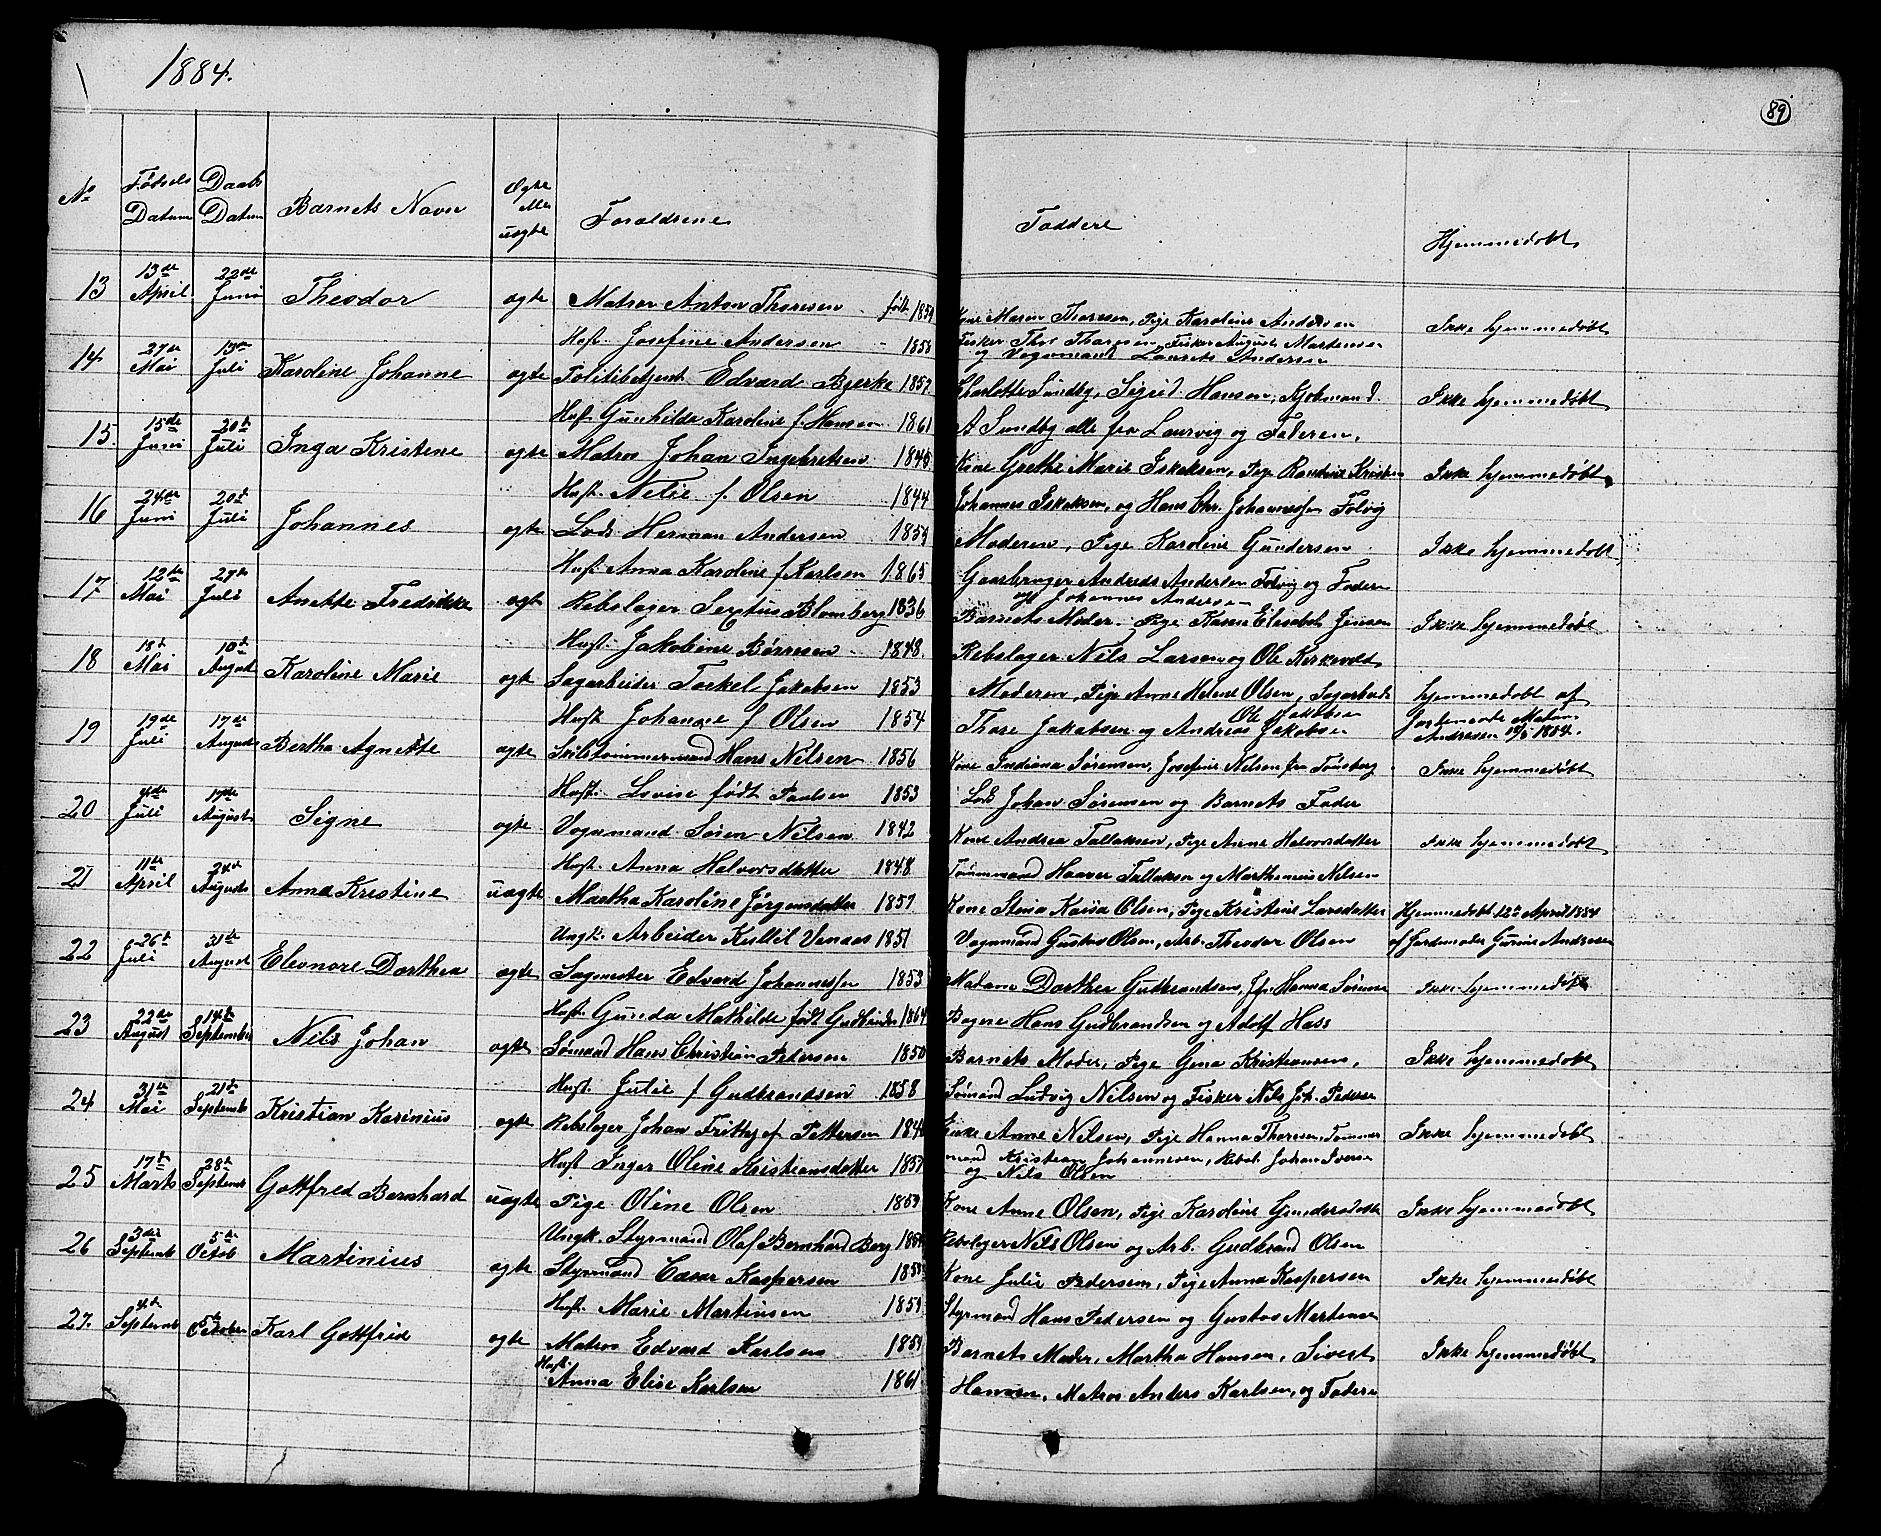 1884.
89
No Fødsels Datum Daabs Datum Barnets Navn Ægte eller uægte Forældrene Faddere Hjemmedøbt
13 13de April 22de Juni Theodor ægte Matros Anton Thoresen født
Kone Maren Thoresen, Pige Karoline Andersen Ikke hjemmedøbt
Hust. Josefine Andersen - 1858
Fisker Thor Thoresen, Fisker August Martensen
og Vognmand Laurets Andersen
14 27de Mai 13de Juli Karoline Johanne ægte Politibetjent Edvard Bjerke 1857
Charlotte Sundby, Sigrid Hansen, Kjøbmand Ikke hjemmedøbt
Hust Gunhilda Karoline f. Hansen 1861
A Sundby alle fra Laurvig og Faderen.
15. 15de Juni 20de Juli Inga Kristene ægte Matros Johan Ingebretsen 1845
Kone Grethe Marie Iskaksen, Pige Ikke hjemmedøbt
Hust. Nelie f. Olsen 1844
Johannes Iskaksen, og Hans Chr. Johannessen Folvig
16 24de Juni 20de Juli Johannes ægte Lods Herman Andersen 1859
Moderen, Pige Karoline Gundersen Ikke hjemmedøbt
Hust Anna Karoline f Karlsen 1865
Gaarbruger Andreas Andersen Folvig og Faderen
og Johannes Andersen
17 12te Mai 27de Juli Anette Fredrikke ægte Rebslager Sextus Blomberg 1836
Barnets Moder, Pige Karen Elisabet Jensen Ikke hjemmedøbt
Hust. Jakobine Børresen - 1848.
Rebslager Nils Larsen og Ole Kirkevold
18 18de Mai 10de August Karoline Marie ægte Sagarbeider Torkel Jakobsen 1853
Moderen, Pige Anne Helene Olsen, Sagarbeider hjemmedøbt af
Ole Jakobsen
Hust. Johanne f Olsen 1854
Thore Jakobsen og Andreas Jakobsen Jordemoder Madam
Andresen 18/5 1884.
19 19de Juli 17de August Bertha Agnette ægte Skibstømmermand Hans Nilsen 1856
Kone Indiana Sørensen, Josefine Nelsen fra Tønsberg Ikke hjemmedøbt
Hust. Lovise født Paulsen 1853
Lods Johan Sørensen og Barnets Fader
20 4de Juli 17de August Signe ægte Vognmand Søren Nilsen 1842
Kone Andrea Tallaksen, Pige Anne Halvorsdatter Ikke hjemmedøbt
Hust. Anna Halvorsdatter 1848
Tømmermand Haaver Tallaksen og Marthenius Nilsen
21 11de April 24de August Anna Kristine uægte Martha Karoline Jørgensdatter 1857
Kone Stina Kaisa Olsen, Pige Kristine Larsdatter Hjemmedøbt 12te April 1884
Ungk. Arbeider Kittil Venaas 1851
Vognmand Gustav Olsen, Arb. Theodor Olsen af Jordemoder Gurine Andresen
22 26de Juli 31de August Eleonore Dorthea ægte Sagmester Edvard Johannessen 1853
Madam Dorthea Gudbrandsen, Jfr. Hanna Sørensen Ikke hjemmedøbt
Hust. Gunda Mathilde født Gudbrandsen 1864
Bøgne Hans Gudbrandsen og Adolf Hass
23 22de August 14de September Nils Johan ægte Sømand Hans Christian Petersen 1850
Barnets Moder, Pige Gina Kristiansen, Ikke hjemmedøbt
Hust. Julie f Gudbrandsen 1858
Sømand Ludvig Nilsen og Fisker Nils Joh. Pedersen
24 31de Mai 21de Septemb Kristian Karinius ægte Rebslager Johan Frithjof Pettersen
Enke Anne Nilsen, Pige Hanna Thoresen, Tømmer Ikke hjemmedøbt
Hust Inger Oline Kristiansdatter 1857
mand Kristian Johannesen, Rebsl. Johan Iversen
og Nils Olsen
25 17de Marts 28de Septemb Gottfred Bernhard uægte Pige Oline Olsen 1853
Kone Anne Olsen, Pige Karoline Gundersdatter Ikke hjemmedøbt
Ungk. Styrmand Olaf Bernhard Berg
Rebslager Nils Olsen og Arb. Gudbrand Olsen
26 3die Septemb 5te Octob Martinius ægte Styrmand Casar Kaspersen
Kone Julie Pedersen, Pige Anna Kaspersen Ikke hjemmedøbt
Hust. Marie Martinsen 1859
Styrmand Hans Pedersen og Gustav Martensen
27. 4de Septemb 5te October Karl Gottfrid ægte Matros Edvard Karlsen 1859
Barnets Moder, Martha Hansen, Sivert Ikke hjemmedøbt
Hust. Anna Elise Karlsen 1861
Hansen, Matros Anders Karlsen, og Faderen